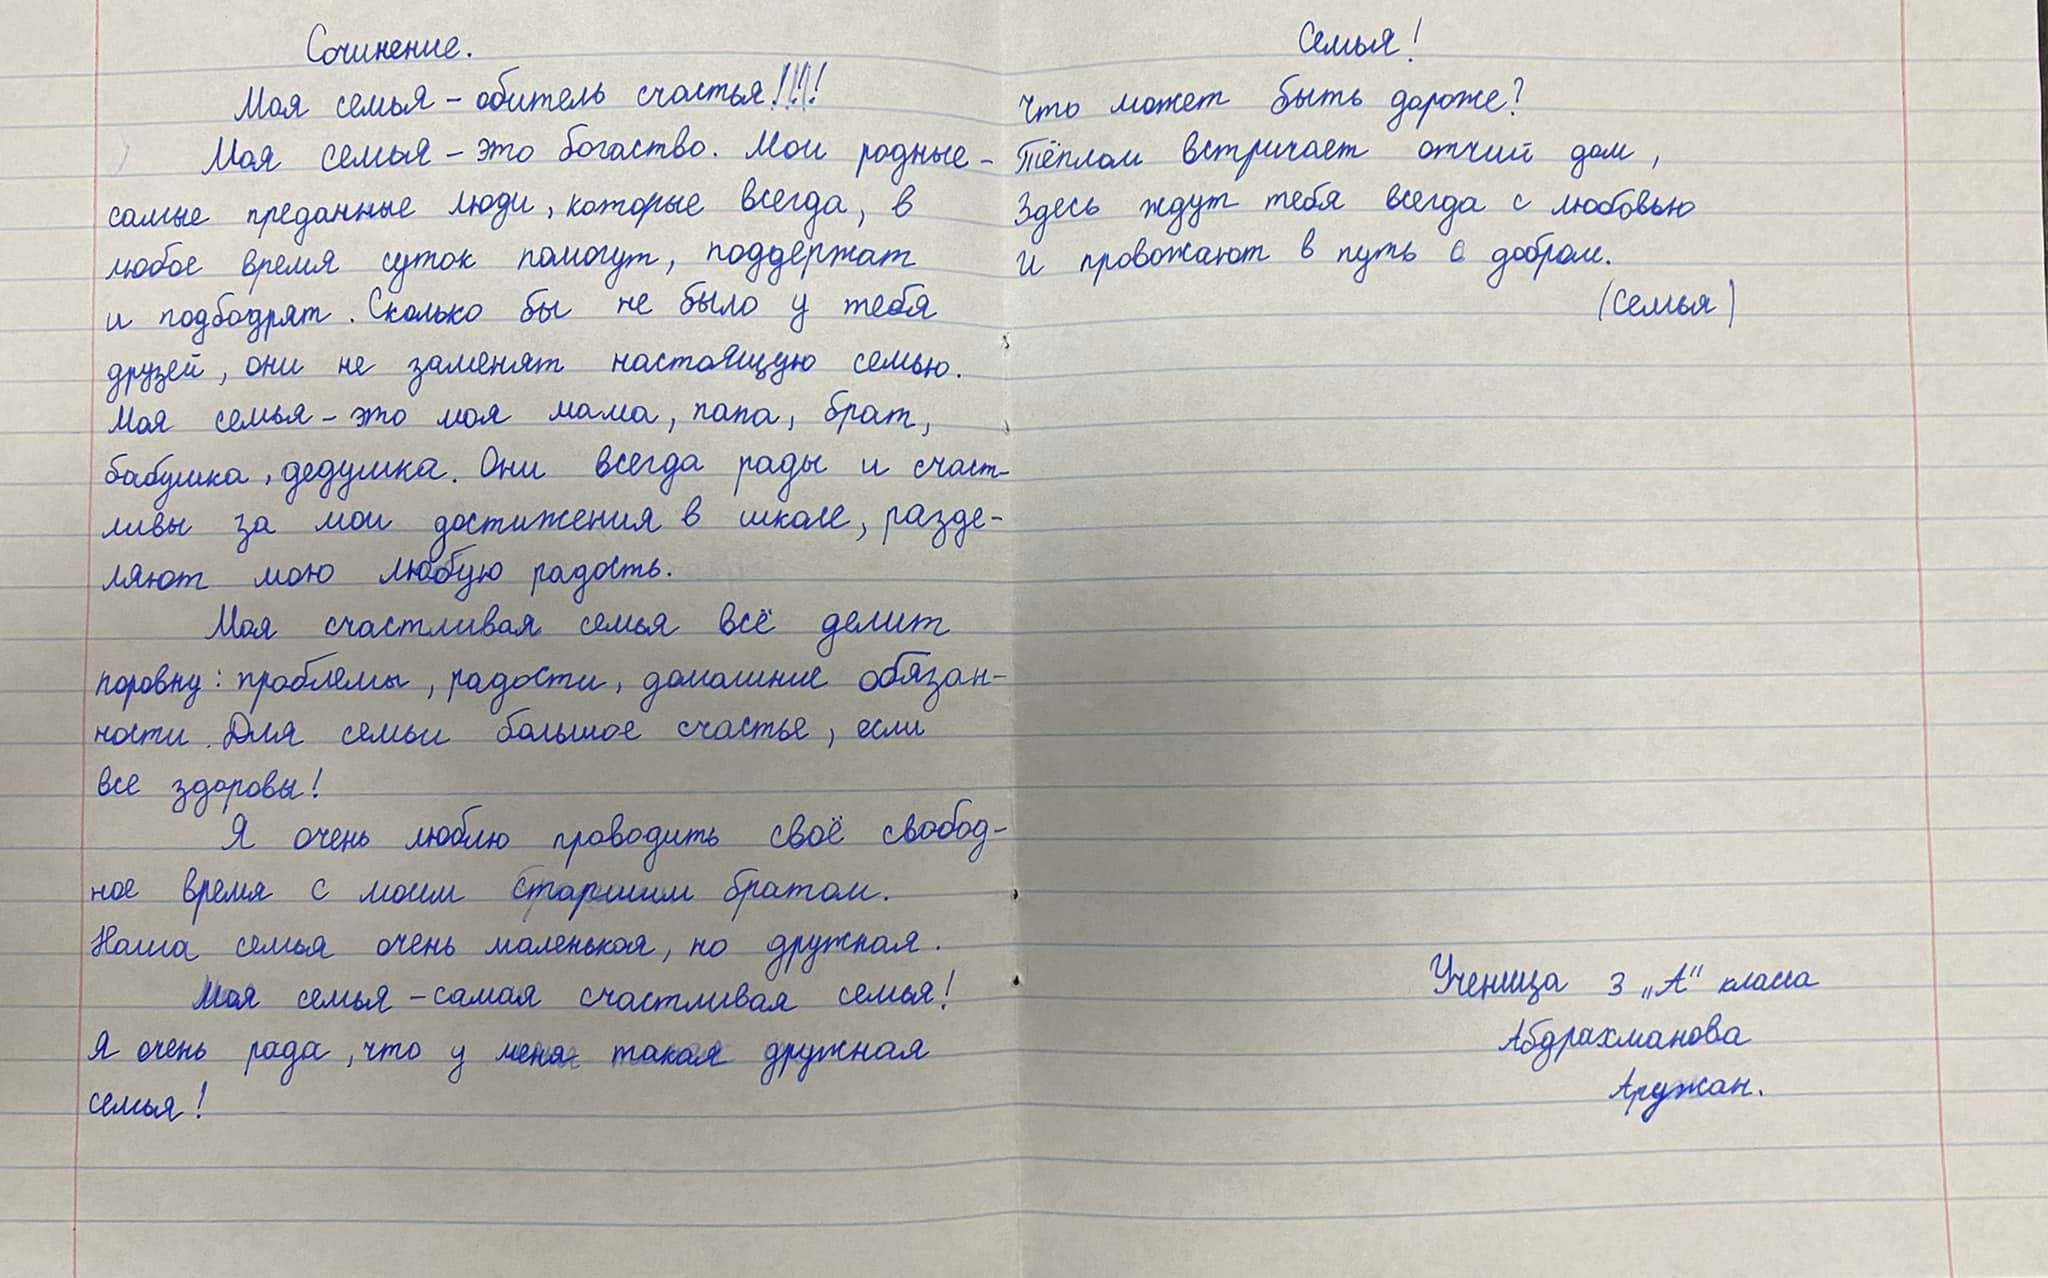 Сочинение.
Моя семья – обитель счастья!!!!
Моя семья – это богаство. Мои родные –
самые преданные люди, которые всегда, в
любое время суток помогут, поддержат
и подбодрят. Сколько бы не было у тебя
друзей, они не заменят настоящую семью.
Моя семья – это моя мама, папа, брат,
бабушка, дедушка. Они всегда рады и счаст-
ливы за мои достижения в школе, разде-
ляют мою любую радость.
Моя счастливая семья всё делит
поровну: проблемы, радости, домашние обязан-
ности. Для семьи большое счастье, если
все здоровы!
Я очень люблю проводить своё свобод-
ное время с моим старшим братом.
Наша семья очень маленькая, но дружная.
Моя семья – самая счастливая семья!
Я очень рада, что у меня такая дружная
семья!
Семья!
Что может быть дороже?
Тёплом встричает отчий дом,
Здесь ждут тебя всегда с любовью
И провожают в путь с добром.
(Семья)
Ученица 3 „А“ класса
Абдрахманова
Аружан.